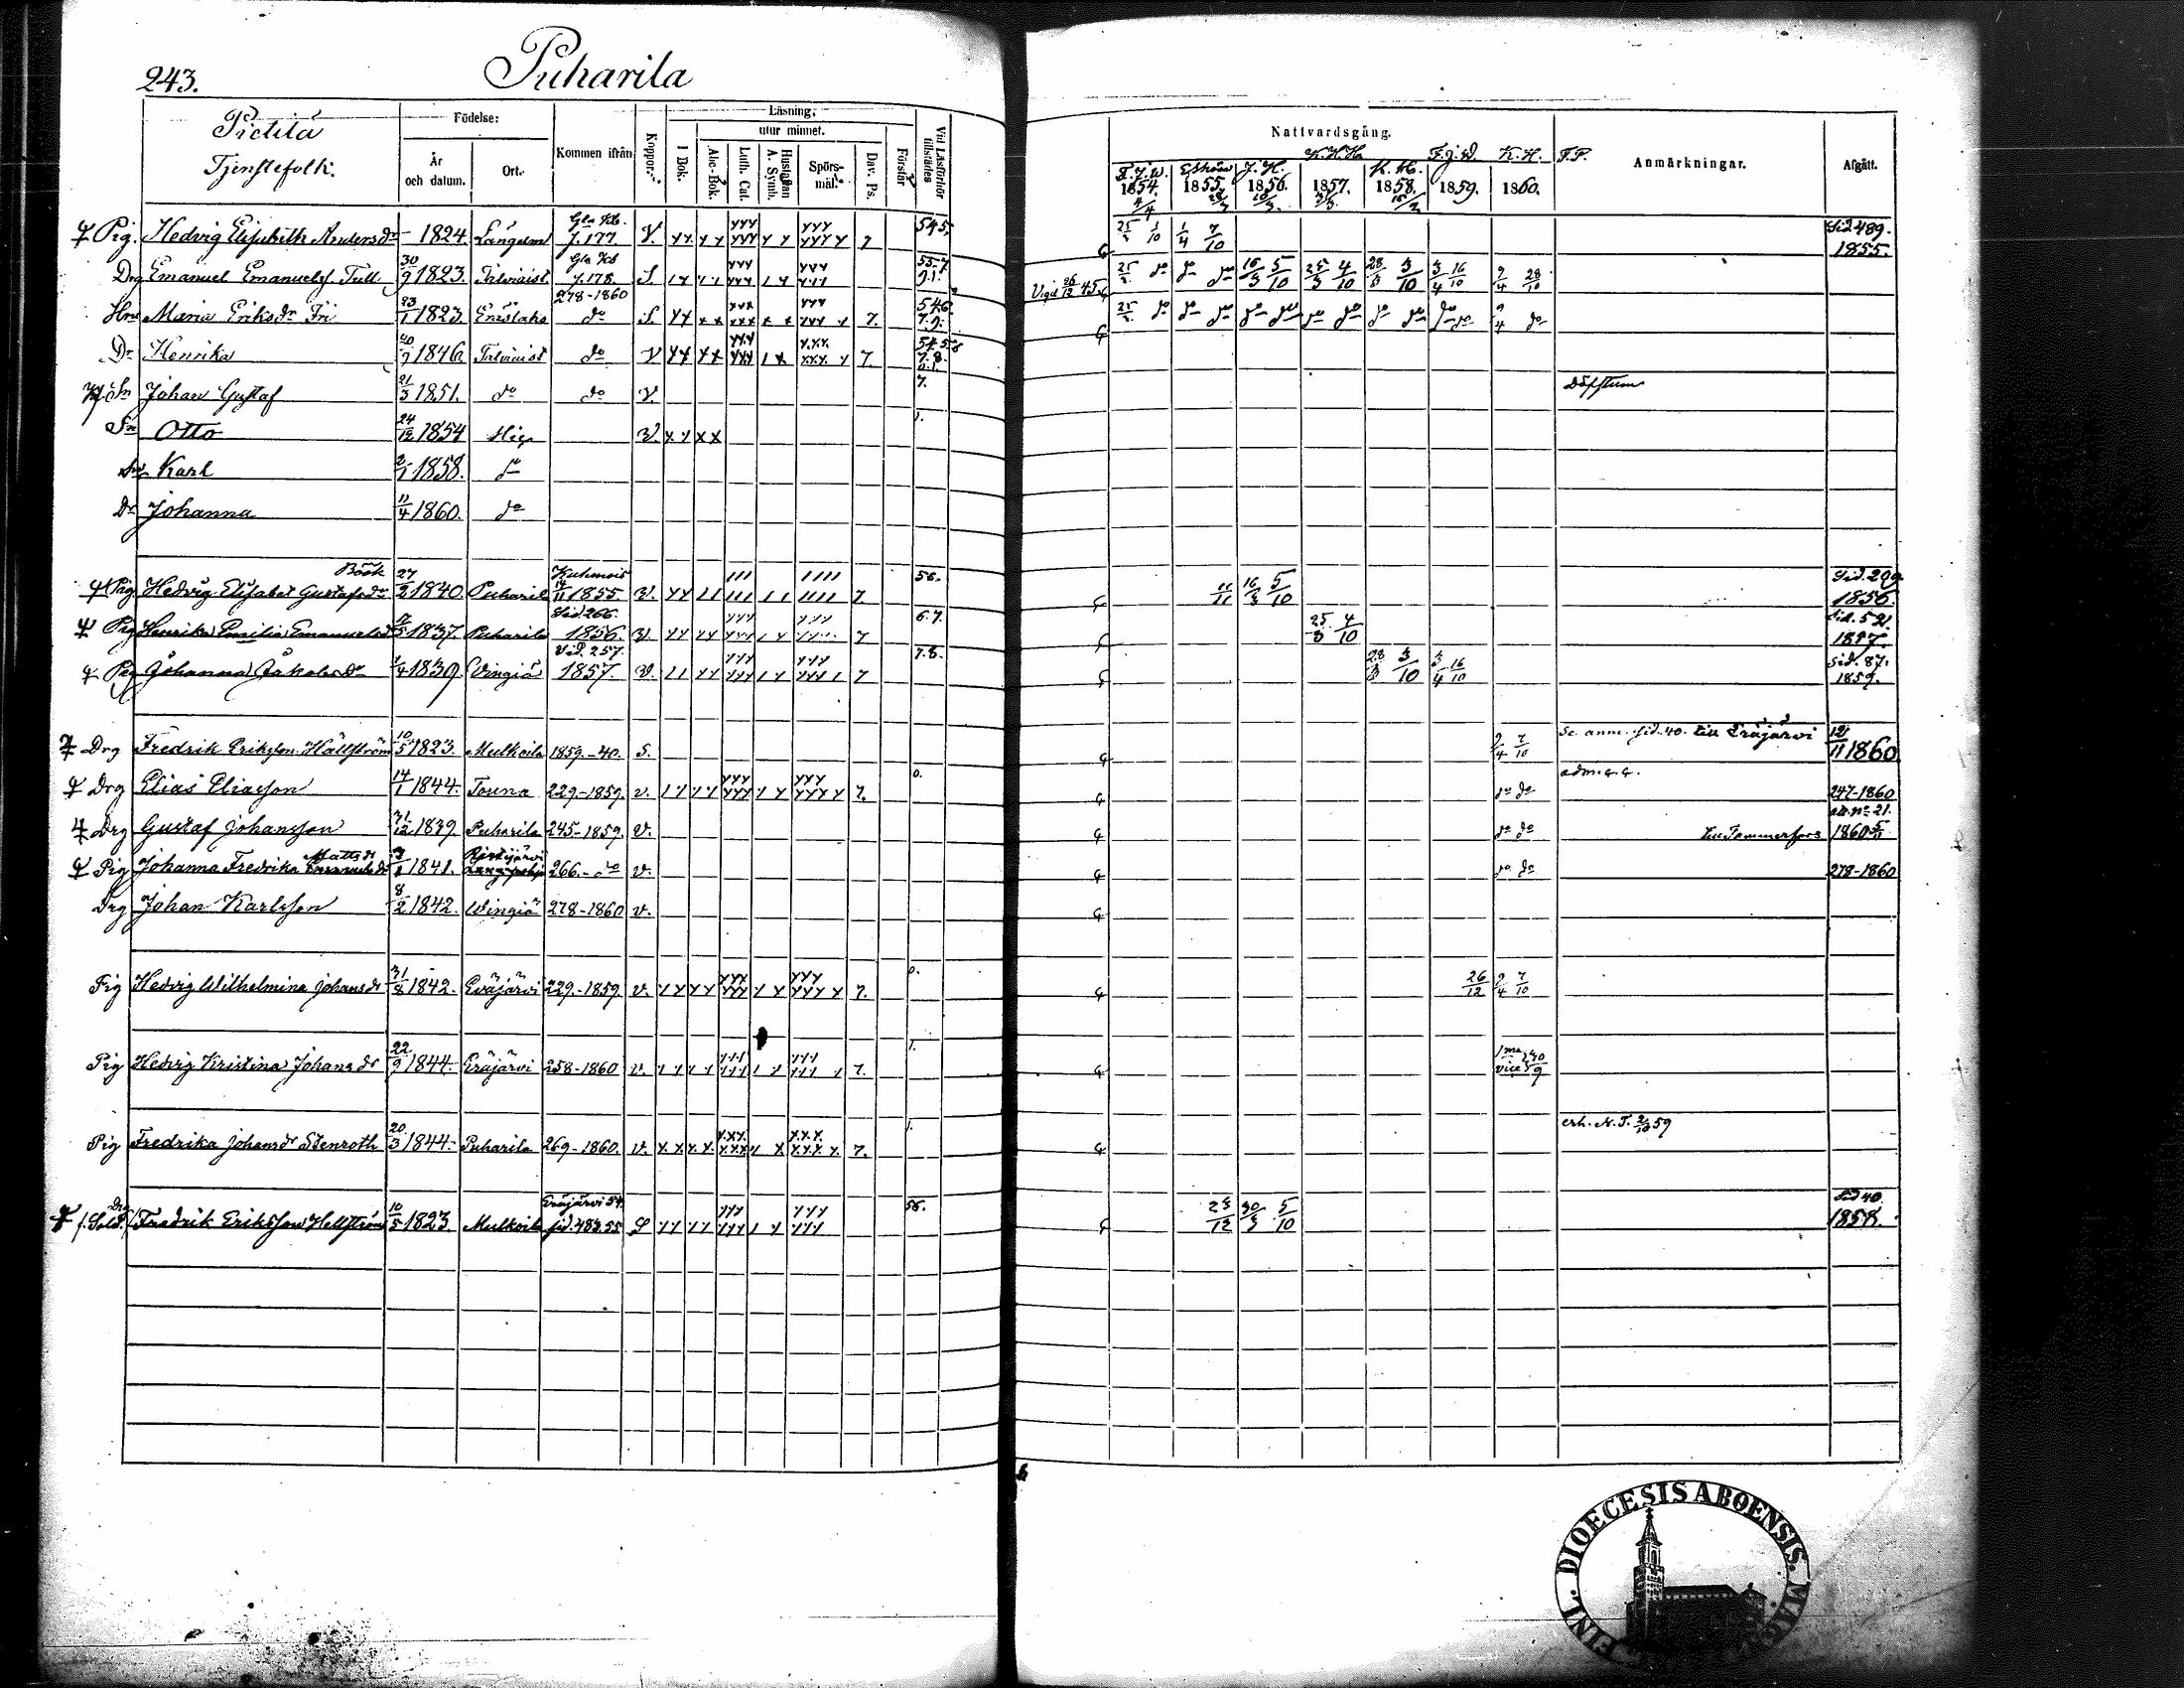 243.
Puharila
Pietilä
Tjenstefolk.
Födelse:
År och datum.
Ort.
Kommen ifrån
Koppor.
Läsning;
I Bok.
utur minnet.
Abc-Bok.
Luth. Cat.
Hustaflan A. Symb.
Spörsmål.
Dav. Ps.
Förstår
Vid Läsförhör tillstädes
Nattvardsgång.
Anmärkningar.
Afgått.
F.J.W. 1854. 1855. J.H. 1856. K.H.H. 1857. K.H. 1858. F.J.W. 1859. K.H. 1860. F.P.
Pig. Hedvig Elisabeth Andersdr 1824. Längelm Gla Kb. f. 177 V. 7 545. 25/3 1/10 1/4 7/10 Sid 489. 1855.
Drg Emanuel Emanuelss. Tull 30/9 1823. Talviaist Gla Kb f. 178 278-1860 S. Vigd 26/12 45. 25/3 do do do 16/3 5/10 25/3 4/10 28/3 3/10 3/4 16/10 9/4 28/10
Hru Maria Eriksdr Fri 23/1 1823. Enislaks do S. 7. 546. 7.9. 25/3 do do do do do do do do do do do 9/4 do
Dr Henrika 1846. Talviaist do V 7.
Sn Johan Gustaf 21/3 1851. do do V. 7. döfstum
Sn Otto 24/12 1854 Higa V. 1.
Sn Karl 2/1 1858. do
Dr Johanna 11/4 1860. do
Pig Hedvig Elisabet Gustafsdr Böök 27/2 1840. Puharil Kuhmois 14/11 1855. V. 7 56. 11/11 16/3 5/10 Sid. 299. 1856.
Pig Henrika Emilia Emanuelsd 1837. Puharila Sid. 266. 1856. V. 7 6.7. 25/3 4/10 Sid. 521. 1857.
Pig Johanna Jakobsdr 1/4 1839 Vingiä Sid. 257. 1857. V. 7 7.8. 28/3 3/10 3/4 16/10 Sid. 87. 1859.
Drg Fredrik Eriksson Hällström 10/5 1823. Mulkoila 1859.-40. S. 9/4 7/10 Se anm. sid. 40. till Eräjärvi 12/11 1860
Drg Elias Eliasson 14/1 1844. Touna 229.-1859. v. 7. 0. do do 247-1860
Drg Gustaf Johansson 31/12 1839. Puharila 245-1859. V. do do till Tammerfors att. no 21. 1860
Pig Johanna Fredrika Mattsdr 1841. 266.- do v. do do 278-1860
Drg Johan Karlsson 8/2 1842. Wingiä 278-1860 v.
Pig Hedvig Wilhelmina Johansdr 31/8 1842. Eräjärvi 229.-1859. v. 7. 0. 26/12 9/4 7/10
Pig Hedvig Kristina Johansdr 22/9 1844. Eräjärvi 258-1860 v. 7. 1. 1ma vice 30/9
Pig Fredrika Johansdr Stenroth 20/3 1844. Puharila 269-1860. v. 7. 1. erh. N.T. 2/10 59
f. Sold. Drg Fredrik Eriksson Hellström 10/5 1823 Mulkoila Eräjärvi 54. sid. 483 55 S 56. 25/12 30/3 5/10 Sid 40. 1858.
DIOECESIS ABOENSIS.